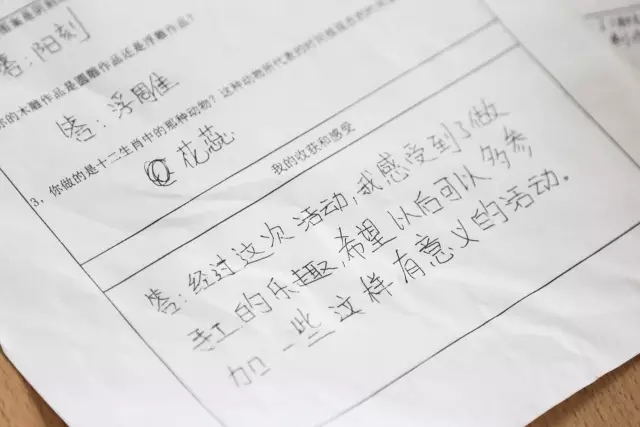 答：阳刻
你的木雕作品是圆雕作品还是浮雕作品？
答：浮雕
3、你做的是十二生肖中的那种动物？这种动物所代表的时间段是
花蕊.
我的收获和感受
答：经过这次活动,我感受到了做
手工的乐趣,希望以后可以多参
加一些这样有意义的活动.